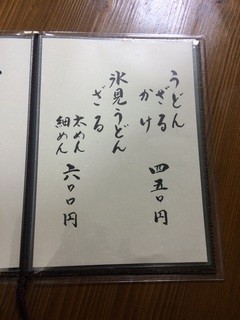 うどん
ざる
かけ 四五〇円
氷見うどん
ざる
太めん
細めん 六〇〇円